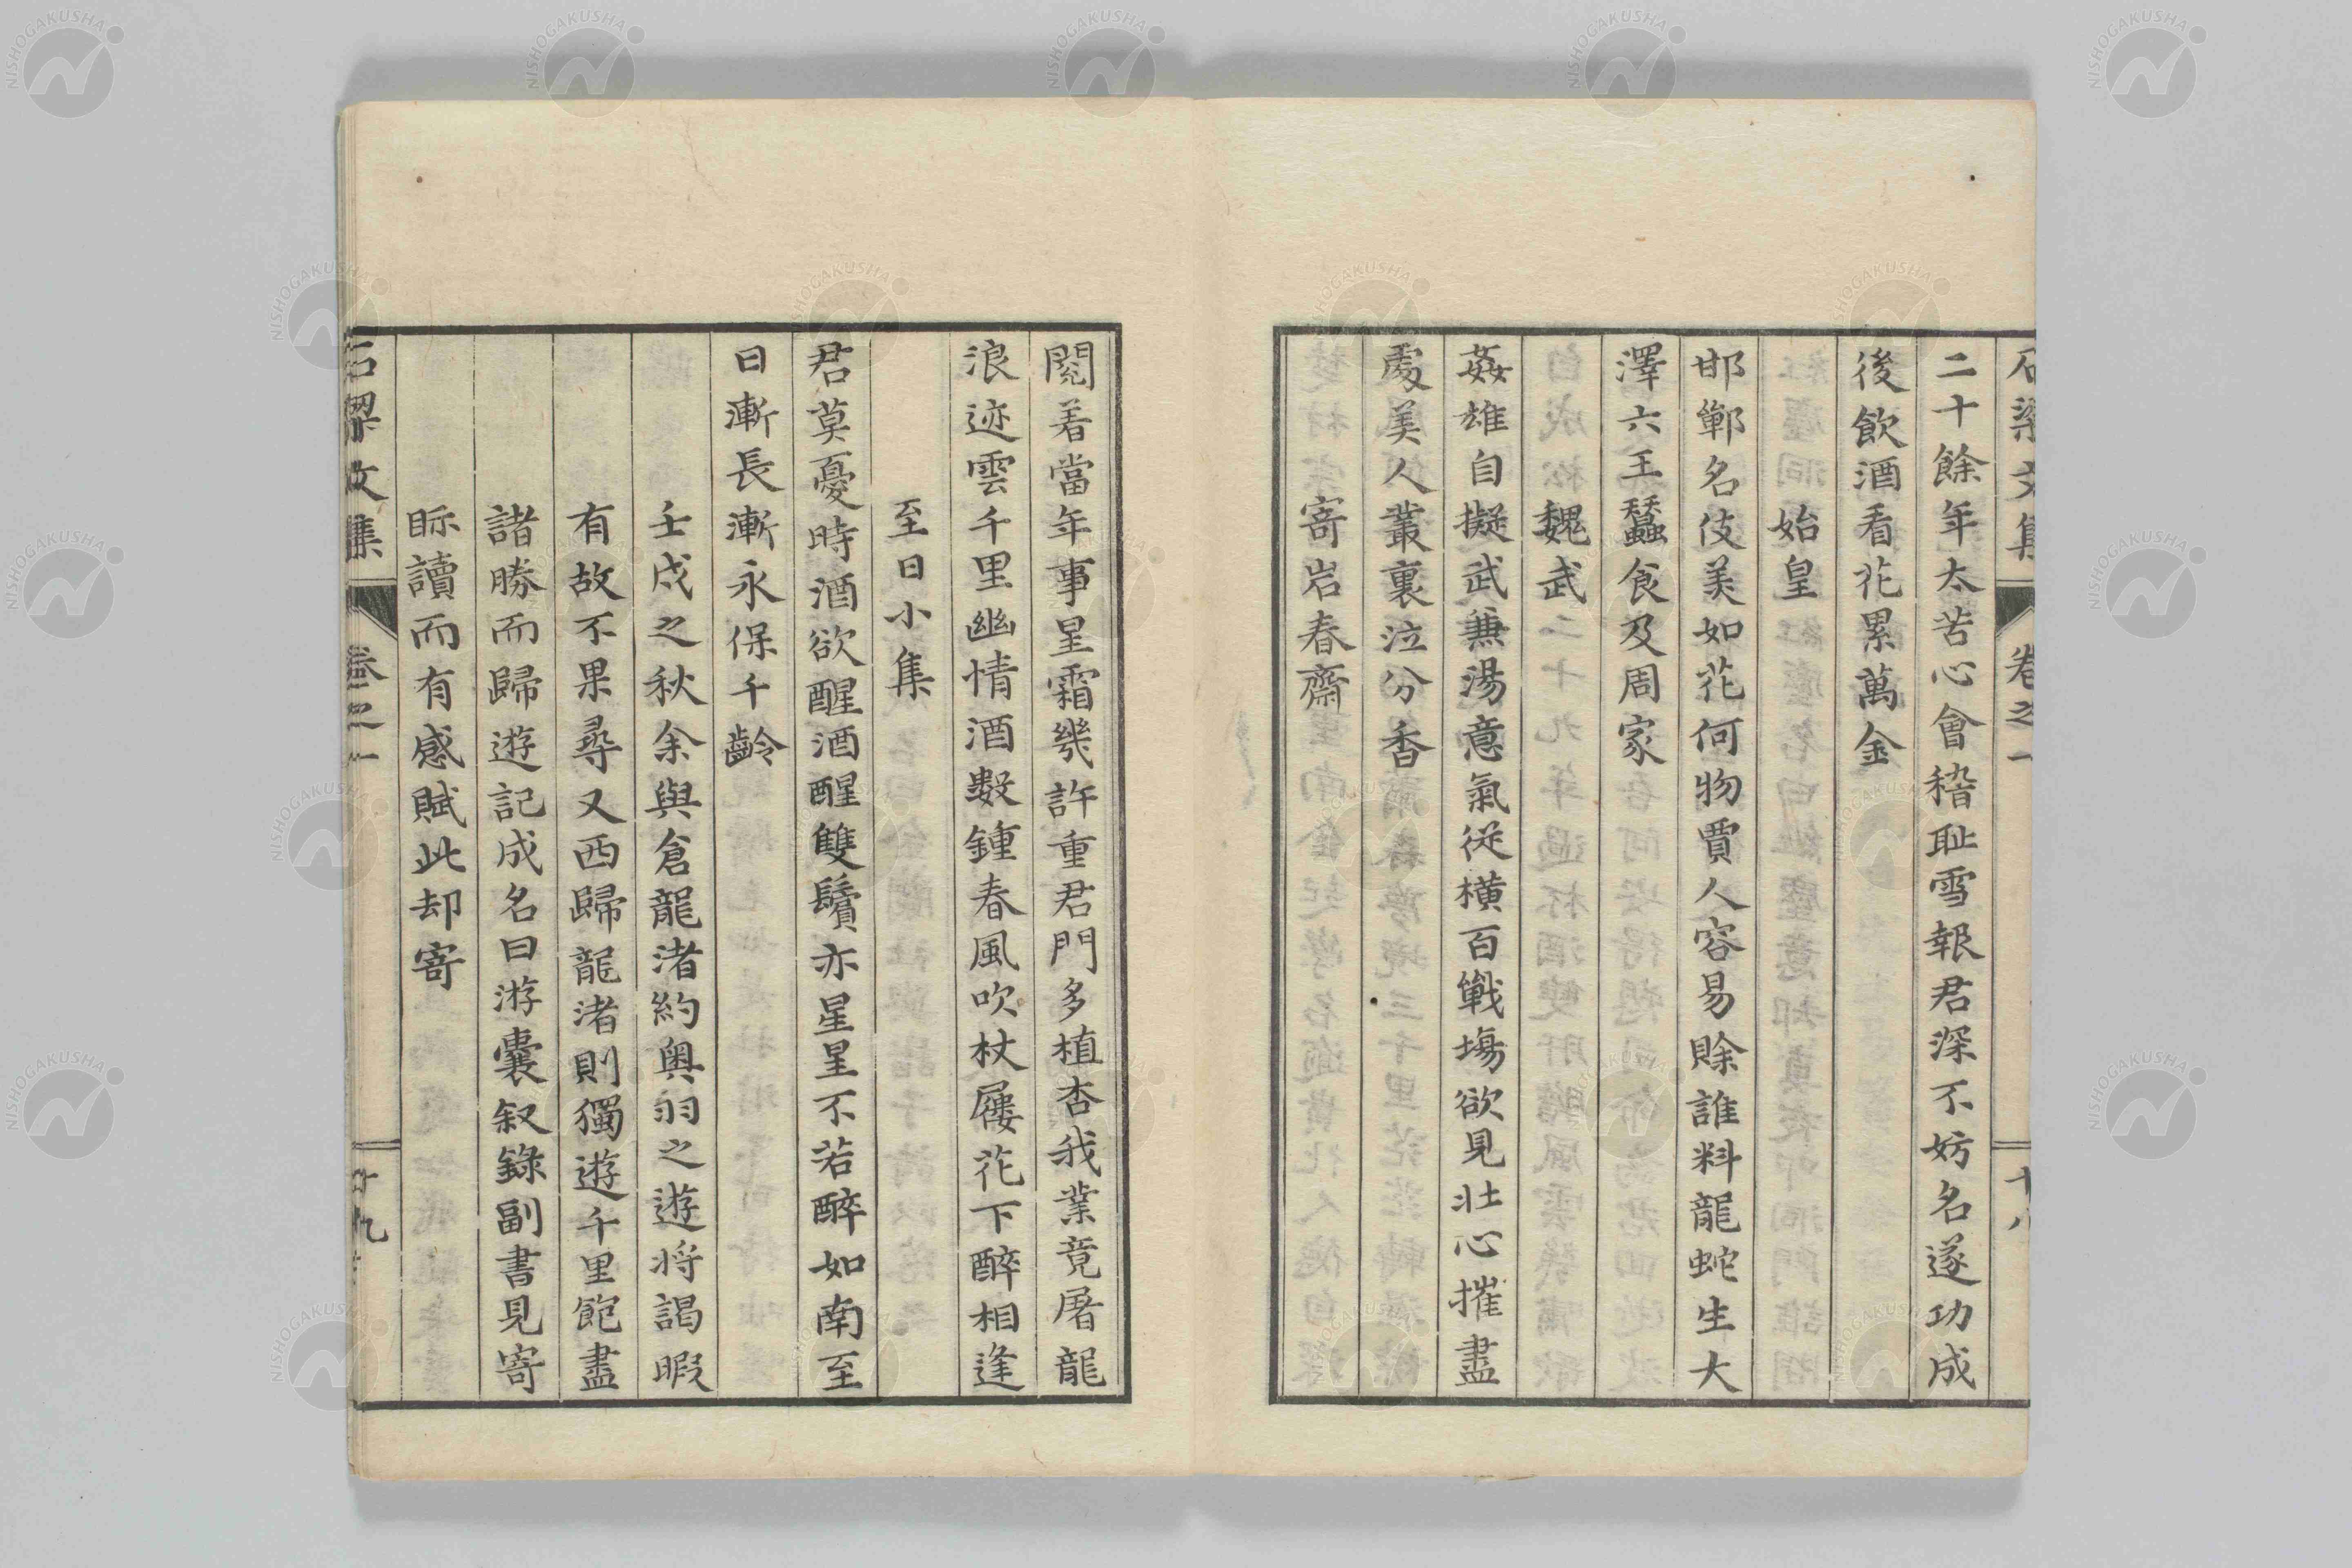 石梁文集 卷之一 十八
二十餘年太苦心會稽耻雪報君深不妨名遂功成
後飲酒看花累萬金
始皇
邯鄲名伎美如花何物賈人容易賒誰料龍蛇生大
澤六王蠶食及周家
魏武
姦雄自擬武兼湯意氣従橫百戰塲欲見壮心摧盡
處美人叢裏泣分香
寄岩春齋
閲着當年事星霜幾許重君門多植杏我業竟屠龍
浪迹雲千里幽情酒數鍾春風吹杖屨花下醉相逢
至日小集
君莫憂時酒欲醒酒醒雙鬢亦星星不若醉如南至
日漸長漸永保千齡
壬戌之秋余與倉龍渚約奥羽之遊将謁暇
有故不果尋又西歸龍渚則獨遊千里飽盡
諸勝而歸遊記成名曰游囊叙錄副書見寄
眎讀而有感賦此却寄
石梁文集 卷之一 十九
NISHOGAKUSHA